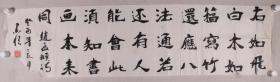 石如飛
白木如
籀寫竹
還應八
法通若
也有人
能會此
須知書
畫本來
同